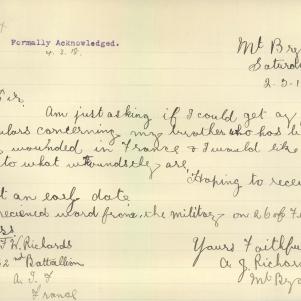 Formally Acknowledged.
4.3.18.
Mt Bry
Saturda
2-3-1
Sir
Am just asking if I could get ay
ulars concerning my brother who has b
wounded in France & I would like
to what wounds they are
Hoping to recei
t an early date
recieved word from, the military on 26 of F
ss
J K Richards
2nd Battallion
A. I. F
France
Yours Faithfu
A J Richard
Mt Bry